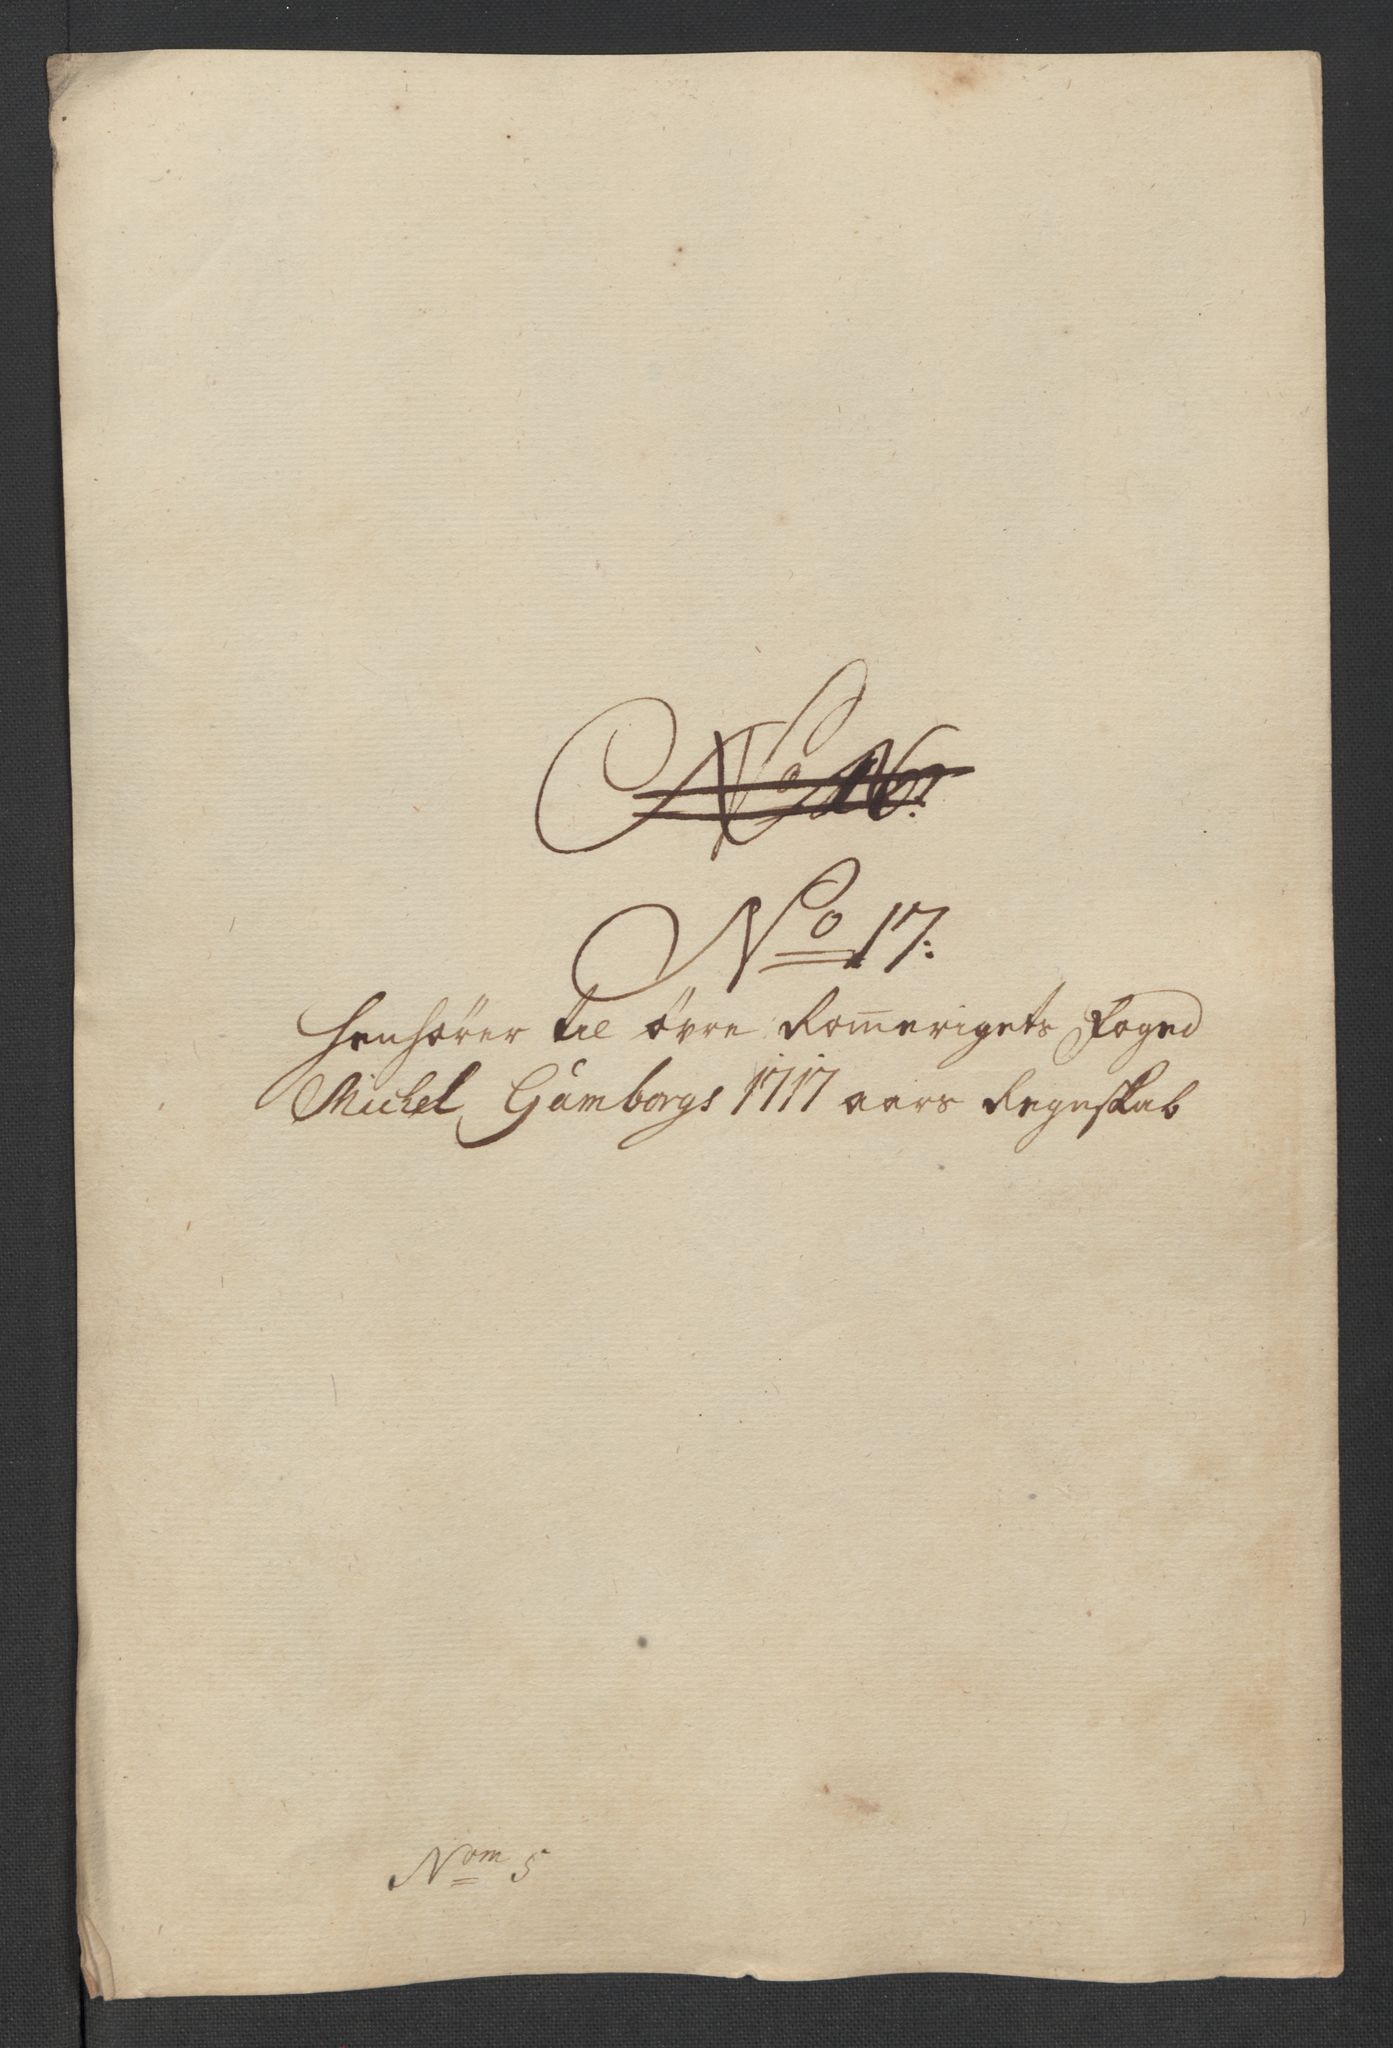 No
No 17:
Henhører til øvre Rom̅erigets Foged
Michel Gamborgs 1717 aars Regnskab
Nom 5